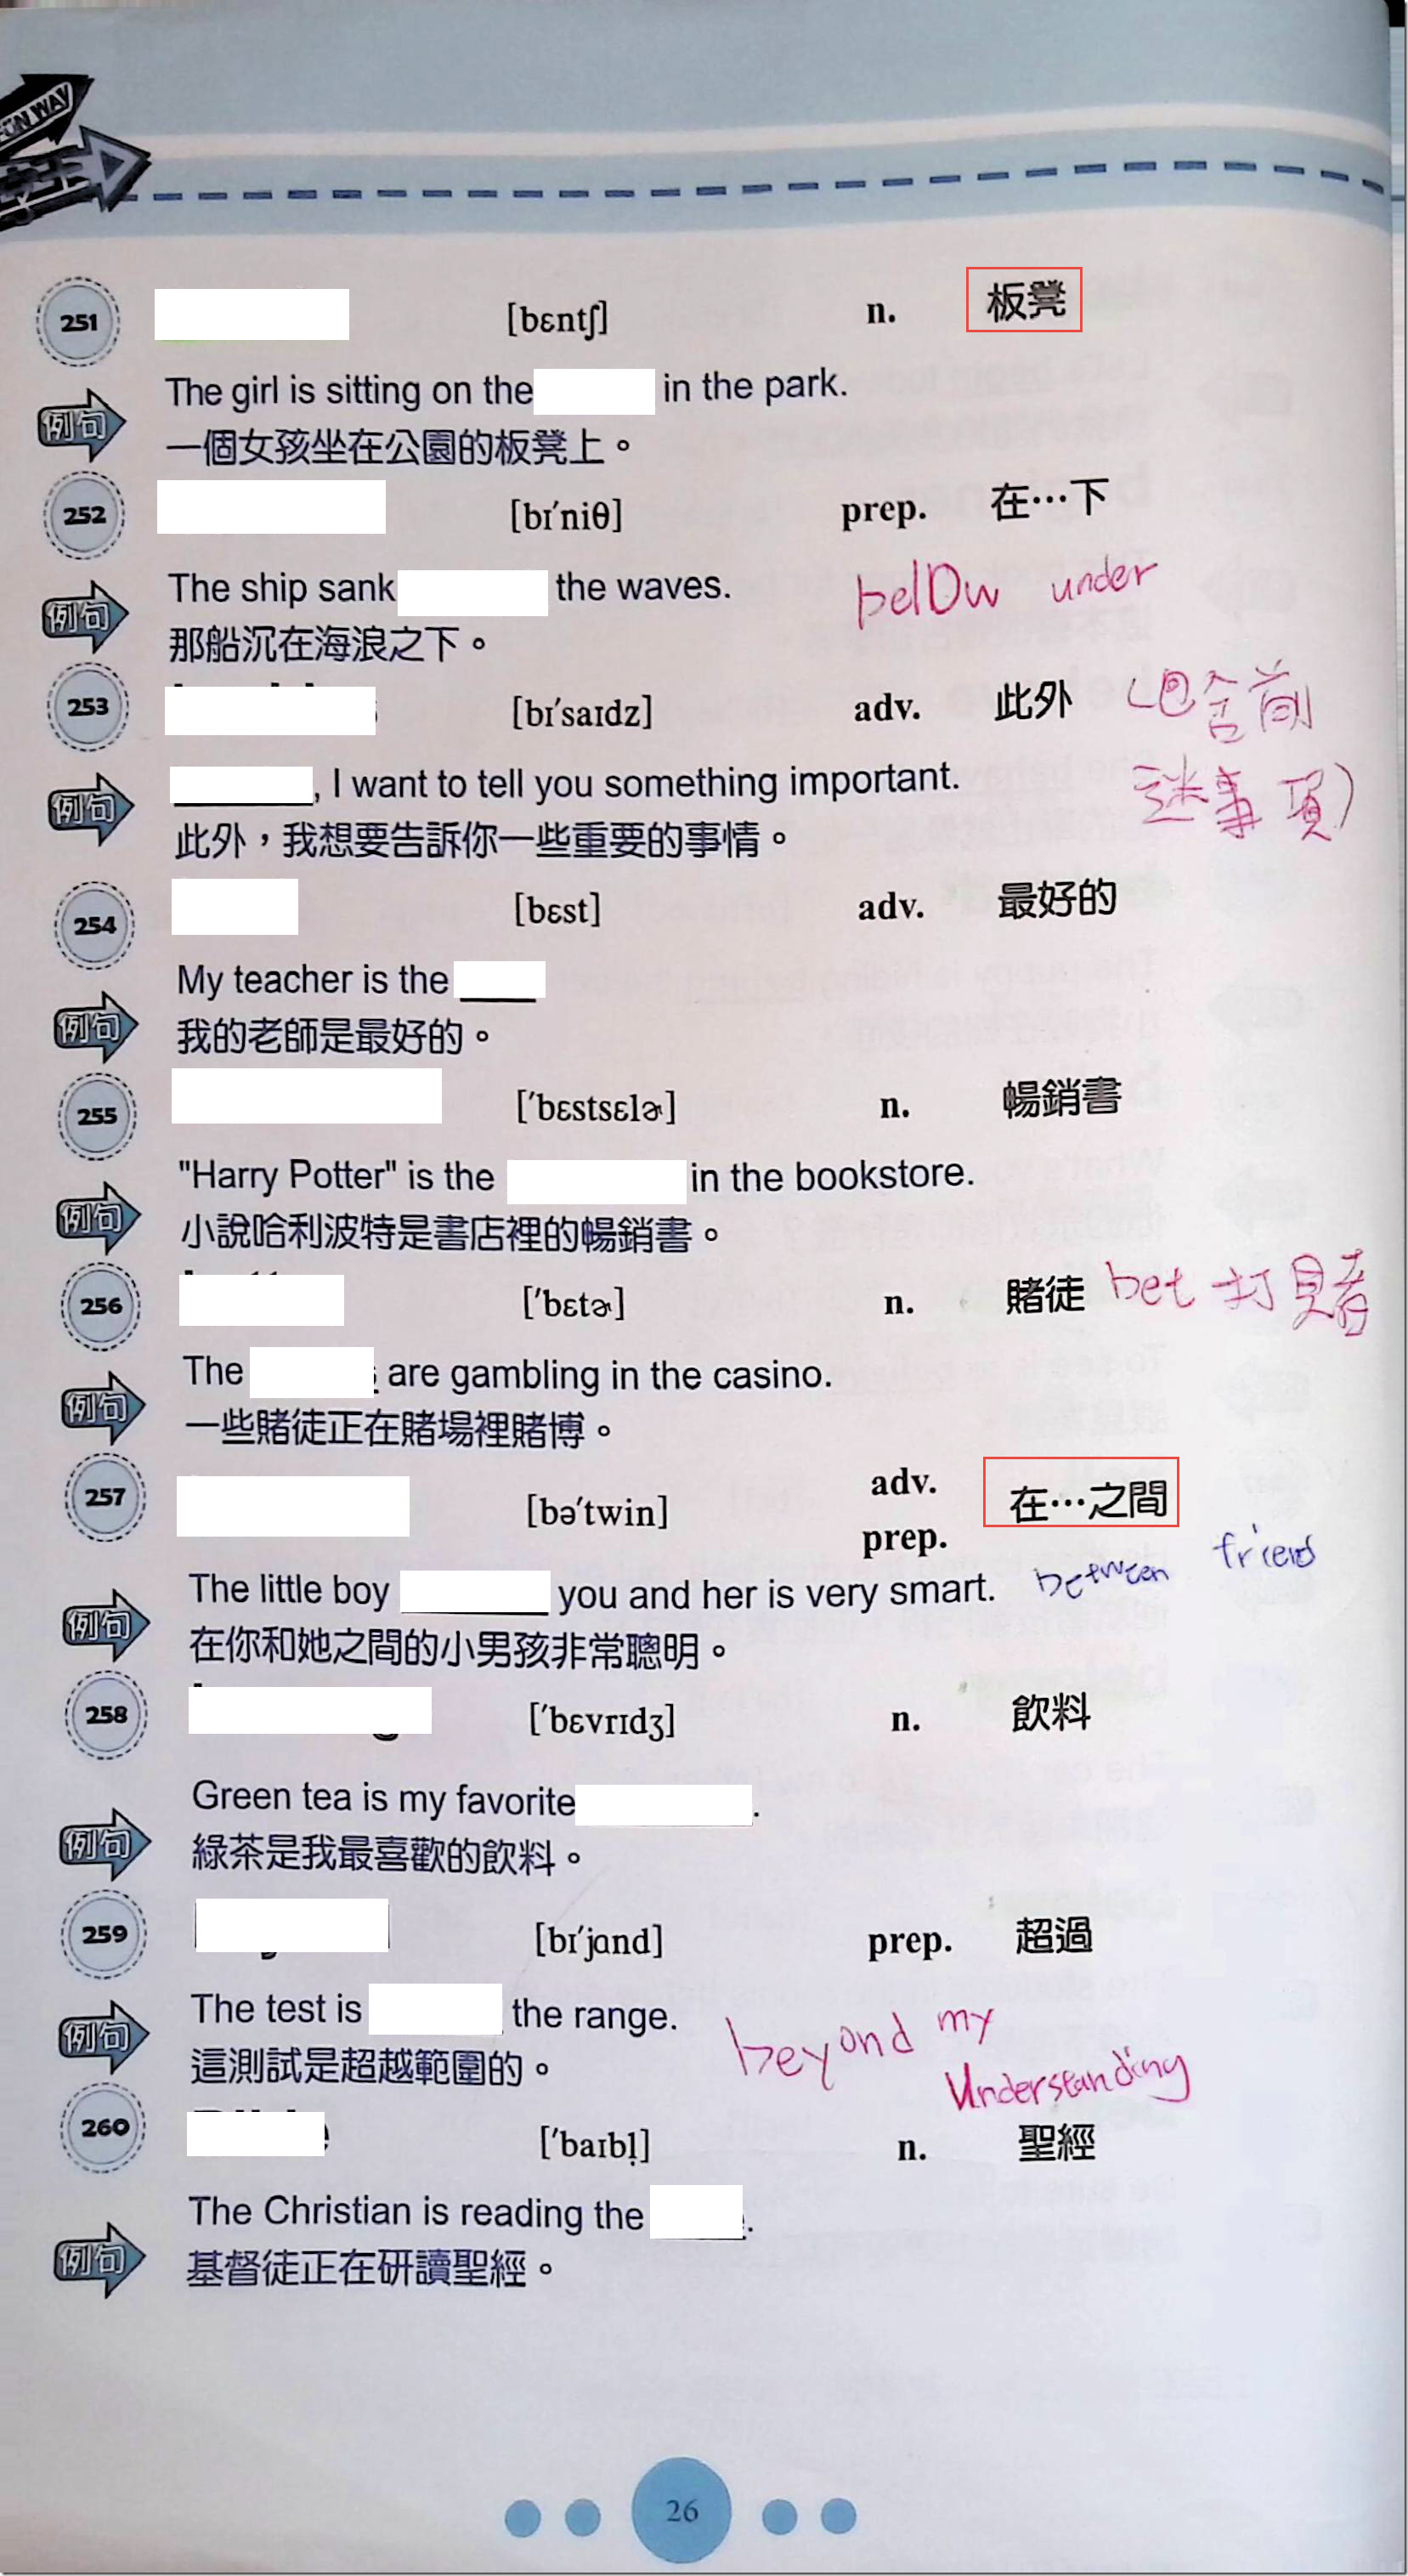 ON WAY
251 [bɛntʃ] n. 板凳
The girl is sitting on the in the park.
例句
一個女孩坐在公園的板凳上。
252 [bɪˈniθ] prep. 在…下
The ship sank the waves. below under
例句
那船沉在海浪之下。
253 [bɪˈsaɪdz] adv. 此外 (包含前
, I want to tell you something important. 述事項)
例句
此外，我想要告訴你一些重要的事情。
254 [bɛst] adv. 最好的
My teacher is the
例句
我的老師是最好的。
255 [ˈbɛstsɛlɚ] n. 暢銷書
"Harry Potter" is the in the bookstore.
例句
小說哈利波特是書店裡的暢銷書。
256 [ˈbɛtɚ] n. 賭徒 bet 打賭
The are gambling in the casino.
例句
一些賭徒正在賭場裡賭博。
257 [bəˈtwin] adv. prep. 在…之間
The little boy you and her is very smart. between friend
例句
在你和她之間的小男孩非常聰明。
258 [ˈbɛvrɪdʒ] n. 飲料
Green tea is my favorite .
例句
綠茶是我最喜歡的飲料。
259 [bɪˈjɑnd] prep. 超過
The test is the range. beyond my
例句
這測試是超越範圍的。 Understanding
260 [ˈbaɪbl̩] n. 聖經
The Christian is reading the .
例句
基督徒正在研讀聖經。
26